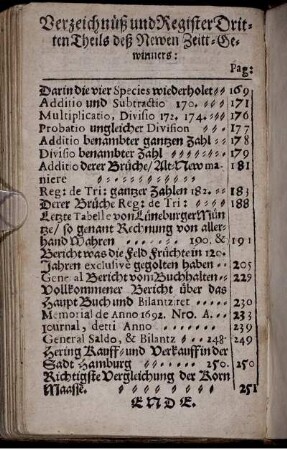 Verzeichnüß und Register Drit-
ten Theils deß Newen Zeitt-Ge-
winners:
Pag:
Darin die vier Species wiederholet 169
Additio und Subtractio 170. 171
Multiplicatio, Divisio 172. 174. 176
Probatio ungleicher Division 177
Additio benambter gantzen Zahl 178
Divisio benambter Zahl 179
Additio derer Brüche / Alt-New ma- 181
niere
Reg: de Tri: gantzer Zahlen 182. 183
Derer Brüche Reg: de Tri: 188
Letzte Tabelle von Lüneburger Mün
tze / so genant Rechnung von aller-
hand Wahren 190. & 191
Bericht was die Feld Früchte in 120.
Jahren exclusivè gegolten haben 205
General Bericht vom Buchhalten 229
Vollkommener Bericht über das
Haupt Buch und Bilantz ret 230
Memorial de Anno 1692. Nro. A. 233
Journal, detti Anno 239
General Saldo, & Bilantz 148. 249
Hering Kauff- und Verkauff in der
Sadt Hamburg 250. 250
Richtigste Vergleichung der Korn
Maasse. 251
ENDE.